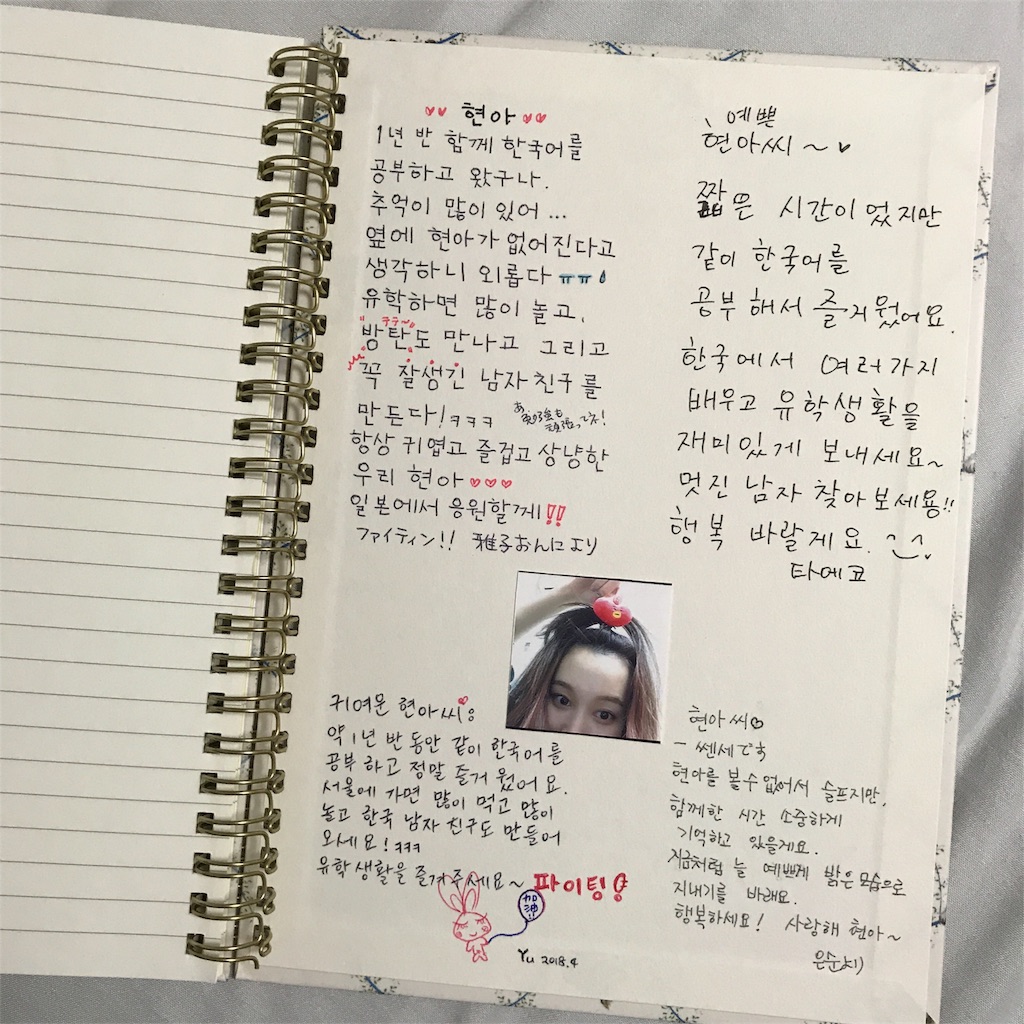 ♥♥ 현아 ♥♥
1년 반 함께 한국어를
공부하고 왔구나.
추억이 많이 있어...
옆에 현아가 없어진다고
생각하니 외롭다 ㅠㅠ
유학하면 많이 놀고,
"방탄"도 만나고 그리고
ㅋㅋ~
꼭 잘생긴 남자친구를
만든다!ㅋㅋㅋ
あ 勉強も
頑張ってネ!
항상 귀엽고 즐겁고 상냥한
우리 현아 ♡♡♡
일본에서 응원할게!!
ファイティン!! 雅子おんにより
예쁜
현아씨~♥
짧은 시간이었지만
같이 한국어를
공부해서 즐거웠어요.
한국에서 여러가지
배우고 유학생활을
재미있게 보내세요~
멋진 남자 찾아보세용!!
행복 바랄게요.
타에코
귀여운 현아씨♡
약 1년 반 동안 같이 한국어를
공부하고 정말 즐거웠어요.
서울에 가면 많이 먹고 많이
놀고 한국 남자친구도 만들어
오세요!ㅋㅋㅋ
유학생활을 즐겨주세요~ 파이팅!
加油!!
Yu 2018.4
현아씨♡
쎈세です
현아를 볼수없어서 슬프지만,
함께한 시간 소중하게
기억하고 있을게요.
지금처럼 늘 예쁘게 밝은 모습으로
지내기를 바래요.
행복하세요! 사랑해 현아~